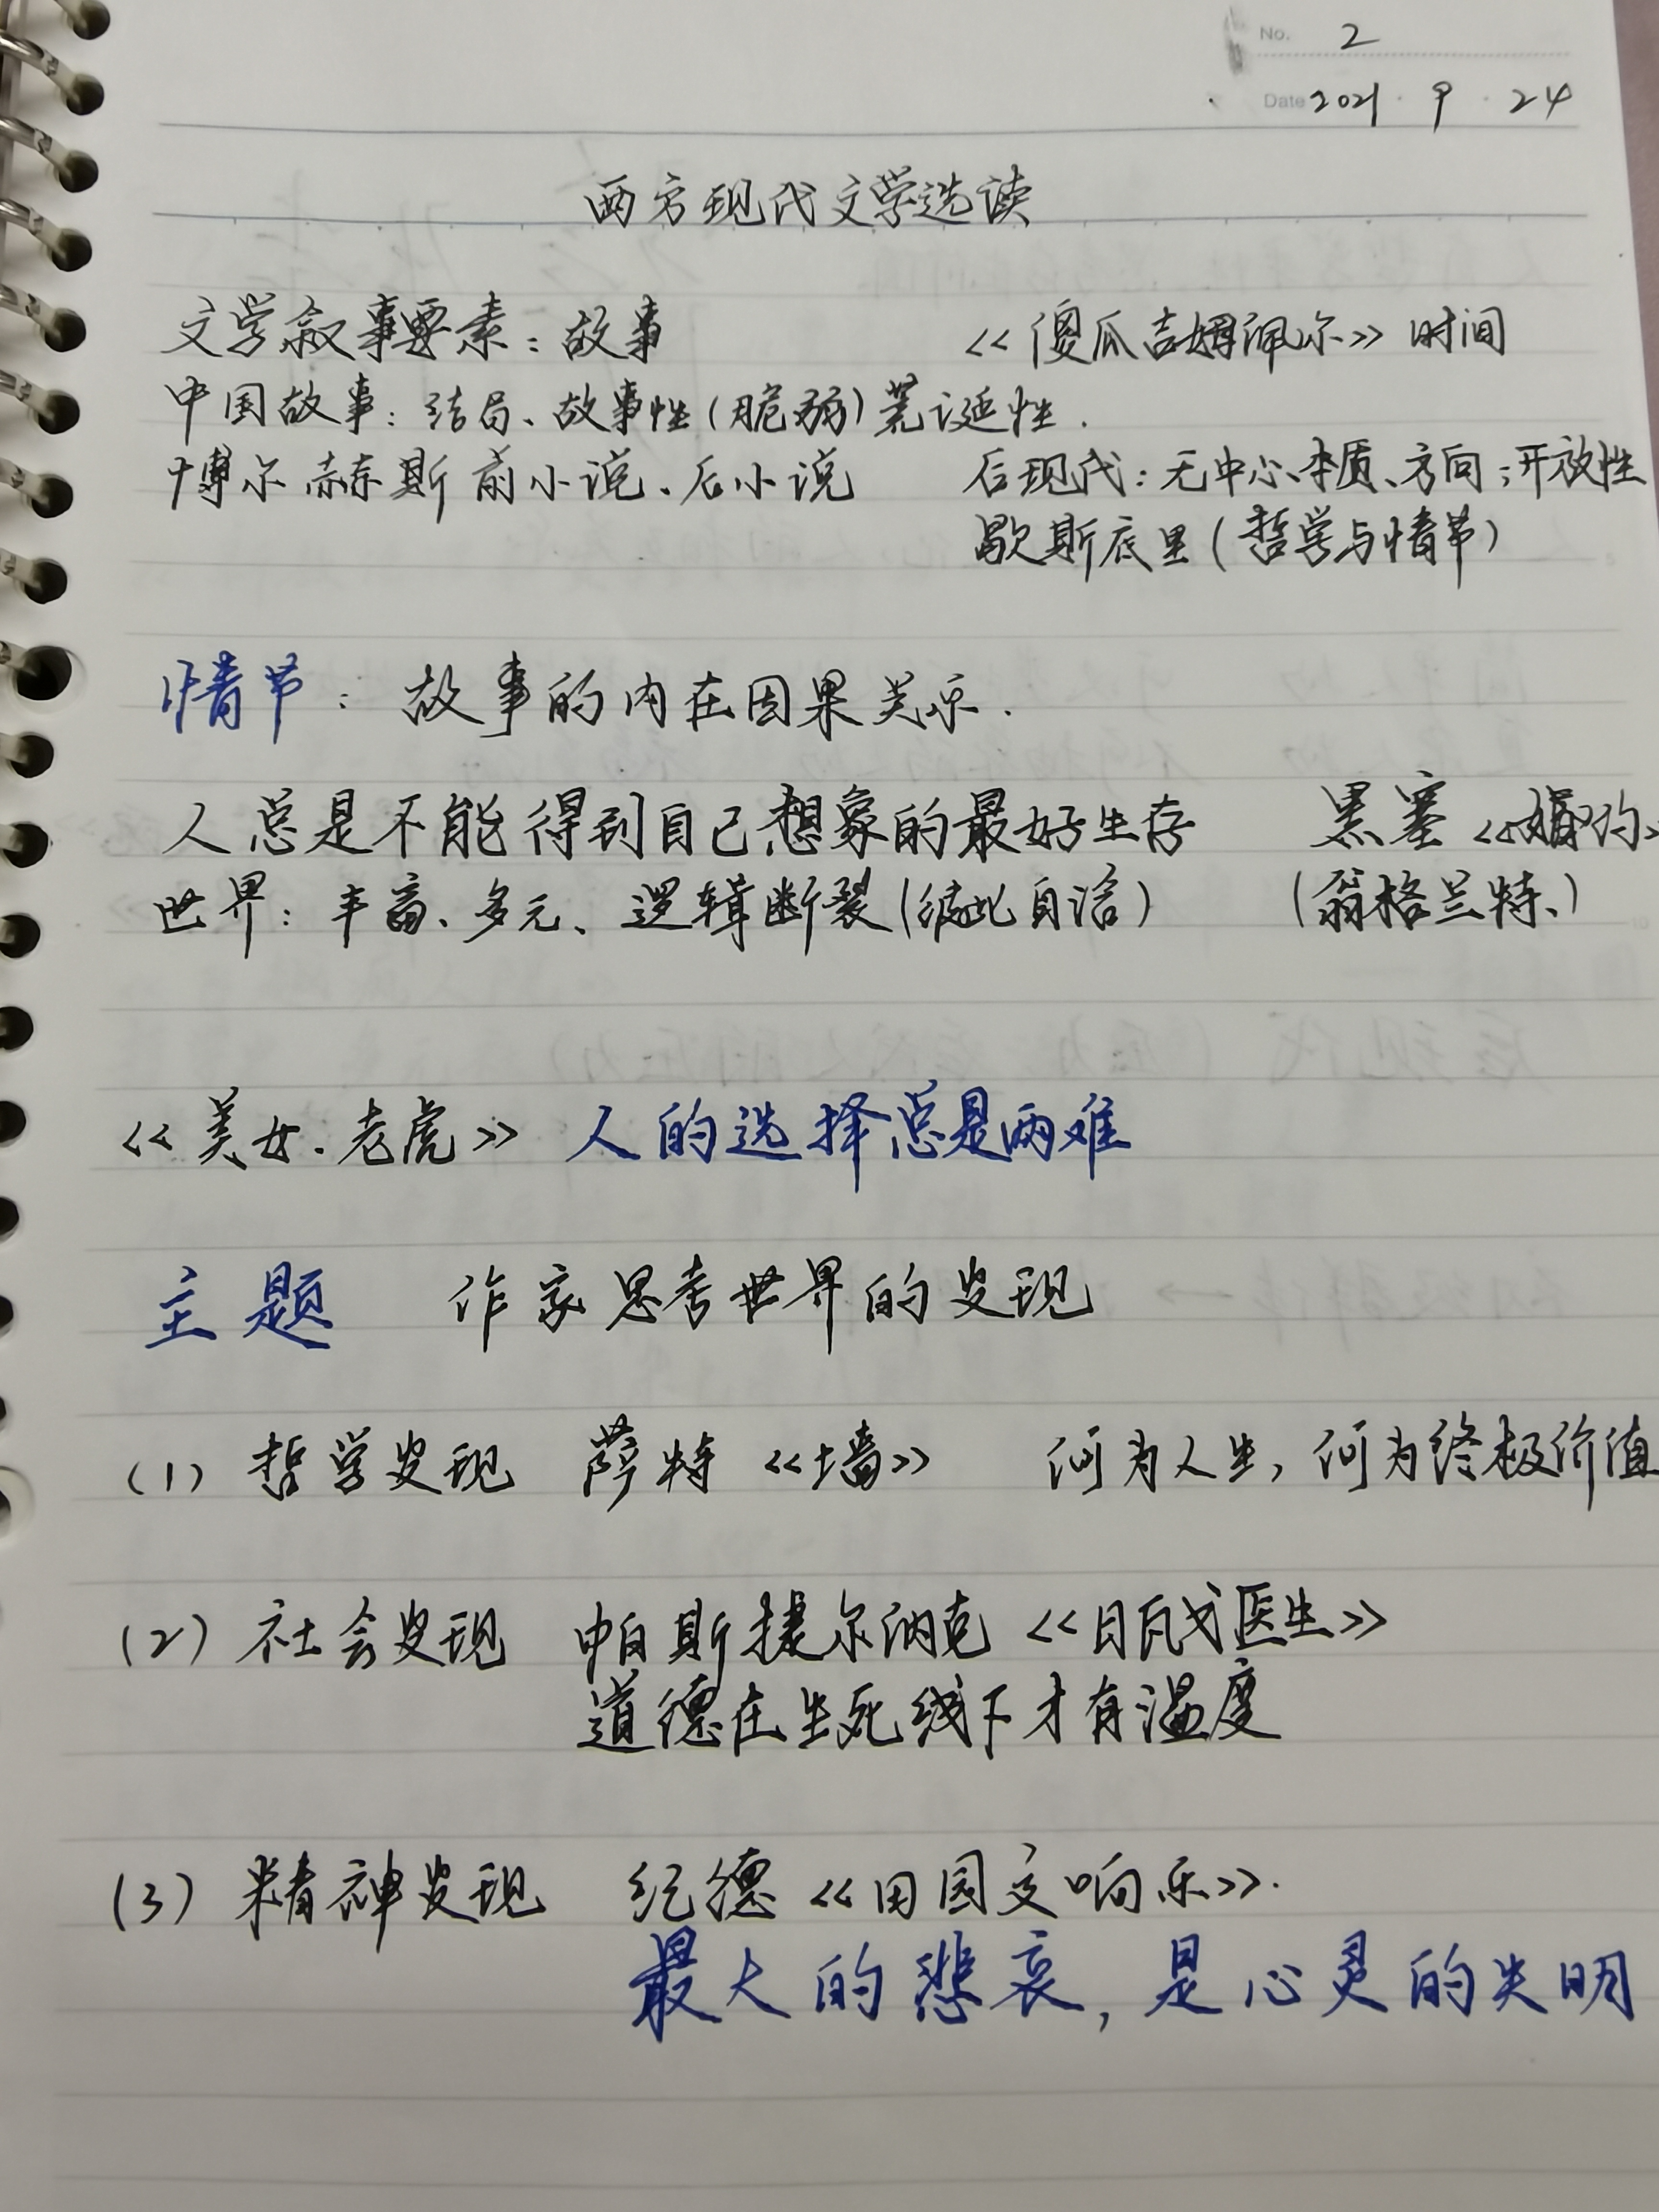 No. 2
Date 2021 · 9 · 24
西方现代文学选读
文学叙事要素：故事 《傻瓜吉姆佩尔》时间
中国故事：结局、故事性(脆弱)荒诞性.
博尔赫斯 前小说、后小说 后现代：无中心、本质、方向；开放性
歇斯底里(哲学与情节)
情节：故事的内在因果关系.
人总是不能得到自己想象的最好生存 黑塞《婚约》
世界：丰富、多元、逻辑断裂(彼此自洽) (翁格兰特、)
《美女.老虎》 人的选择总是两难
主题 作家思考世界的发现
(1) 哲学发现 萨特《墙》 何为人生，何为终极价值
(2) 社会发现 帕斯捷尔纳克《日瓦戈医生》
道德在生死线下才有温度
(3) 精神发现 纪德《田园交响乐》.
最大的悲哀，是心灵的失明